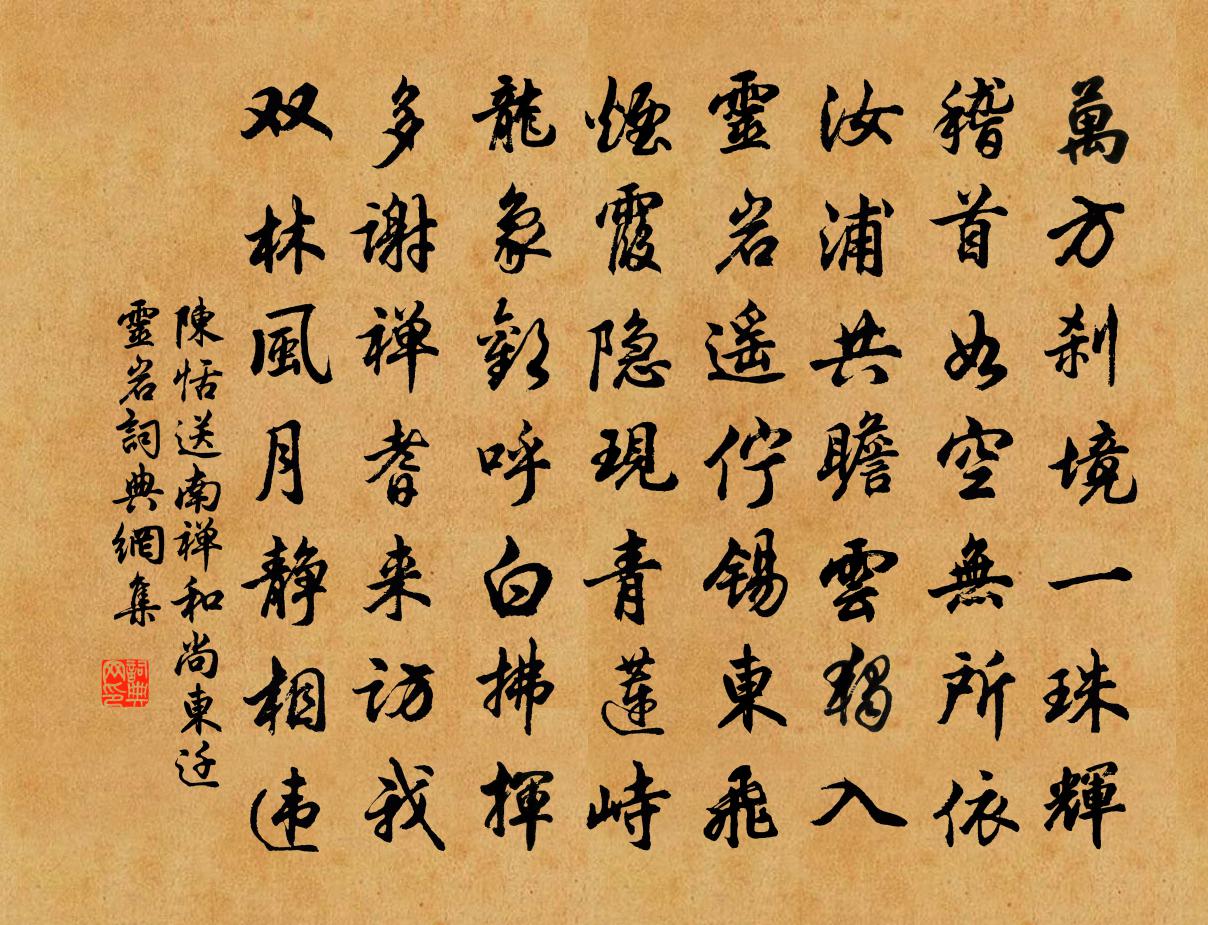 萬方刹境一珠輝
稽首如空無所依
汝浦共瞻雲獨入
靈岩遥佇錫東飛
煙霞隐現青蓮峙
龍象歡呼白拂揮
多謝禅耆来访我
双林風月静相违
陳恬送南禅和尚東迁
靈岩詞典網集
詞典網印